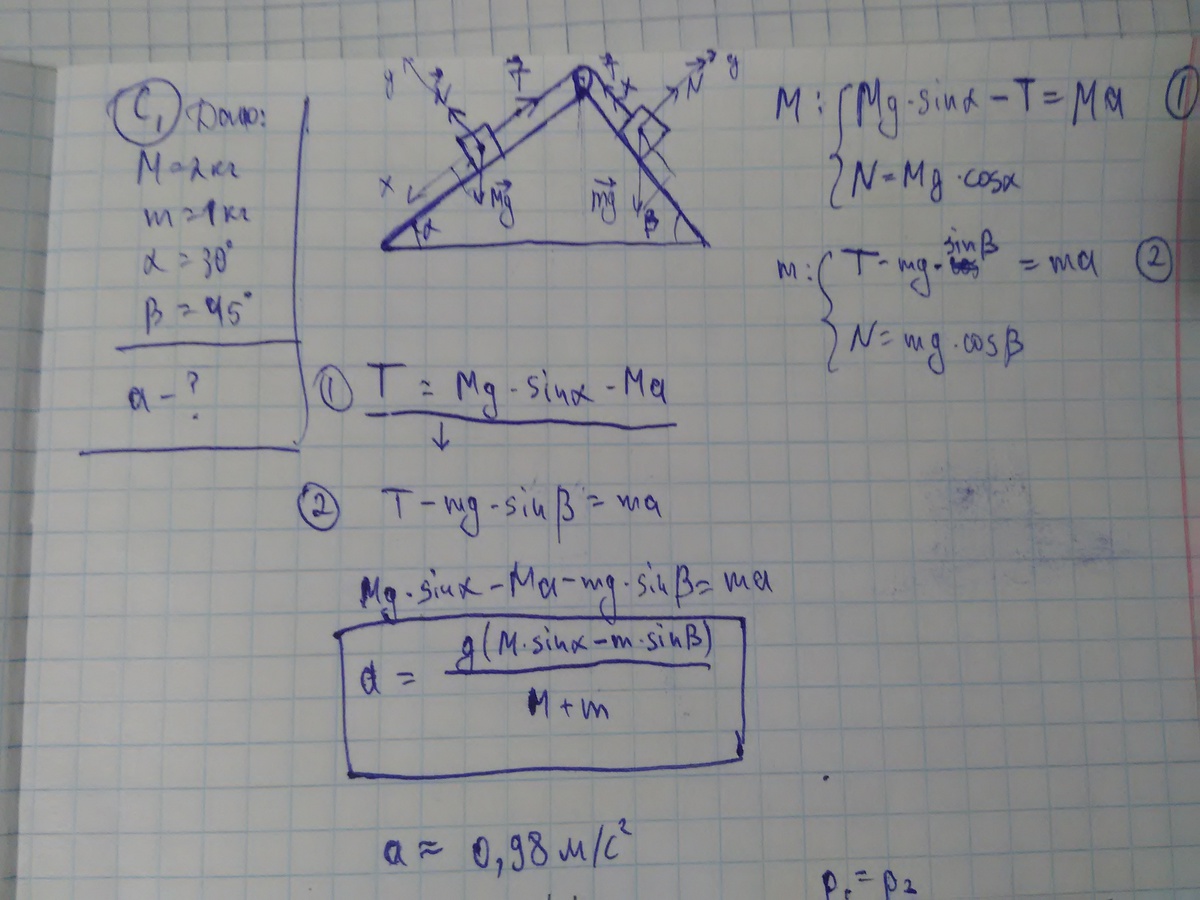 C₁ Дано:
M = 2кг
m = 1кг
α = 30°
β = 45°
a - ?
y N⃗ T⃗ T⃗ x N⃗ y
x α Mg⃗ mg⃗ β
M: { Mg·sinα - T = Ma ①
N = Mg·cosα
m: { T - mg·sinβ = ma ②
N = mg·cosβ
① T = Mg·sinα - Ma
↓
② T - mg·sinβ = ma
Mg·sinα - Ma - mg·sinβ = ma
a = g(M·sinα - m·sinβ)
M + m
a ≈ 0,98 м/с²
p₁ = p₂